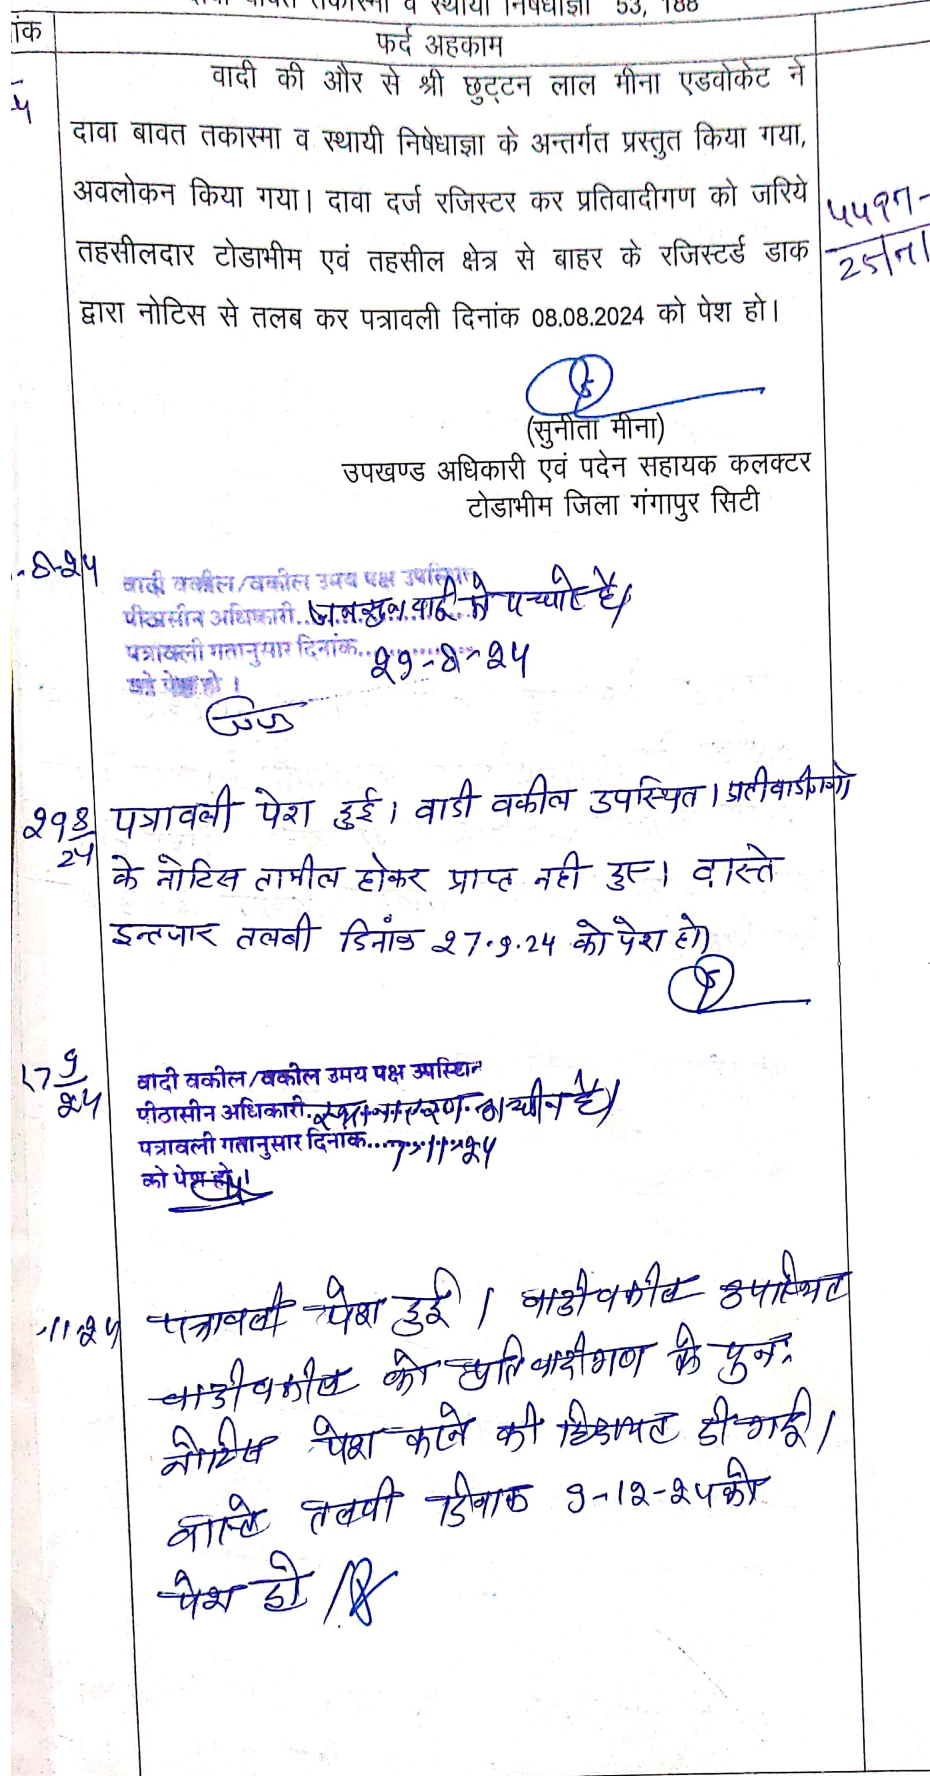 दावा बावत तकास्मा व स्थायी निषेधाज्ञा 53, 188
फर्द अहकाम
वादी की और से श्री छुट्टन लाल मीना एडवोकेट ने
दावा बावत तकास्मा व स्थायी निषेधाज्ञा के अन्तर्गत प्रस्तुत किया गया,
अवलोकन किया गया। दावा दर्ज रजिस्टर कर प्रतिवादीगण को जरिये
तहसीलदार टोडाभीम एवं तहसील क्षेत्र से बाहर के रजिस्टर्ड डाक
द्वारा नोटिस से तलब कर पत्रावली दिनांक 08.08.2024 को पेश हो।
(सुनीता मीना)
उपखण्ड अधिकारी एवं पदेन सहायक कलक्टर
टोडाभीम जिला गंगापुर सिटी
वादी वकील/वकील उभय पक्ष उपस्थित
पीठासीन अधिकारी.. जनसुनवाई में है।
पत्रावली गतानुसार दिनांक.. २९-८-२५
को पेश हो।
२९ 8/24 पत्रावली पेश हुई। वादी वकील उपस्थित। प्रतीवादीगणो
के नोटिस तामील होकर प्राप्त नही हुए। वास्ते
इन्तजार तलबी दिनांक २7.9.24 को पेश हो।
वादी वकील/वकील उभय पक्ष उपस्थित
पीठासीन अधिकारी. है।
पत्रावली गतानुसार दिनांक.... 7-11-२५
को पेश हो।
पत्रावली पेश हुई। वादी वकील उपस्थित
वादी वकील को प्रतिवादीगण के पुनः
नोटिस पेश करने की हिदायत दी गई।
वास्ते तलबी दिनांक 9-12-२५ को
पेश हो।